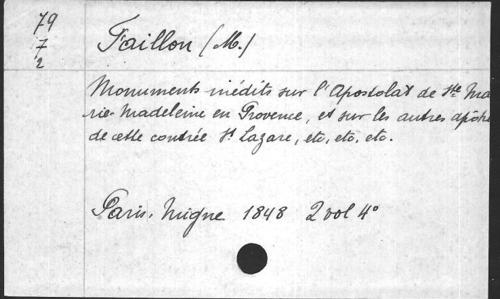 79
7
2
Faillon (M.)
Monuments inédits sur l'Apostolat de Ste Ma
rie-Madeleine en Provence, et sur les autres apôt
de cette contrée St Lazare, etc, etc, etc.
Paris, Migne 1848 2 vol 4°